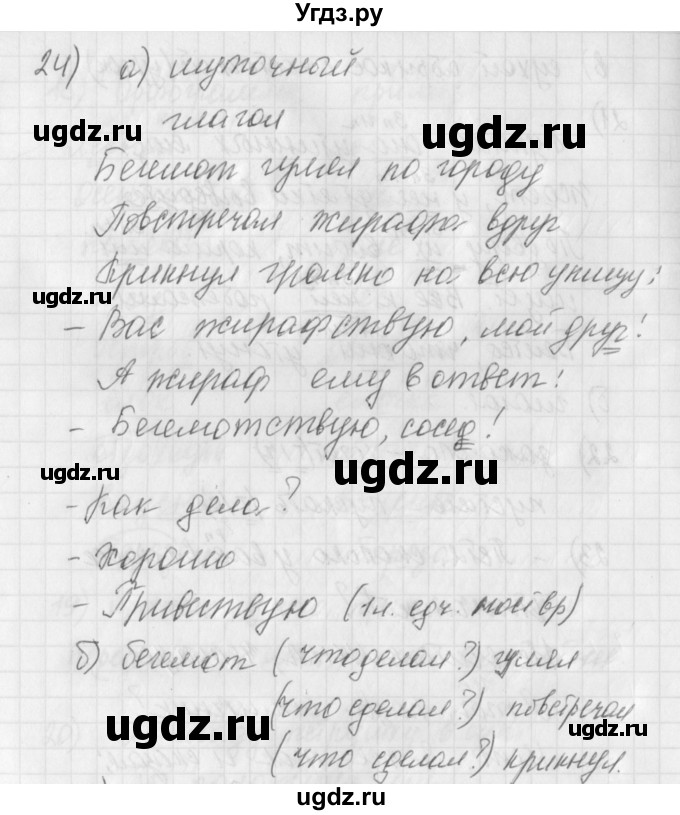 Угдз.ру
24) а) шуточный
глагол
ugdz.ru
ugdz.ru
Бегемот гулял по городу
Повстречал жирафа вдруг
Крикнул громко на всю улицу:
ugdz.ru
- Вас жирафствую, мой друг!
ugdz.ru
А жираф ему в ответ:
- Бегемотствую, сосед!
ugdz.ru
ugdz.ru
- Как дела?
- Хорошо
- Привествую (1л. ед.ч. наст вр)
б) бегемот (что делал?) гулял
ugdz.ru
(что сделал?) повстречал
ugdz.ru
(что сделал?) крикнул.
ugdz.ru